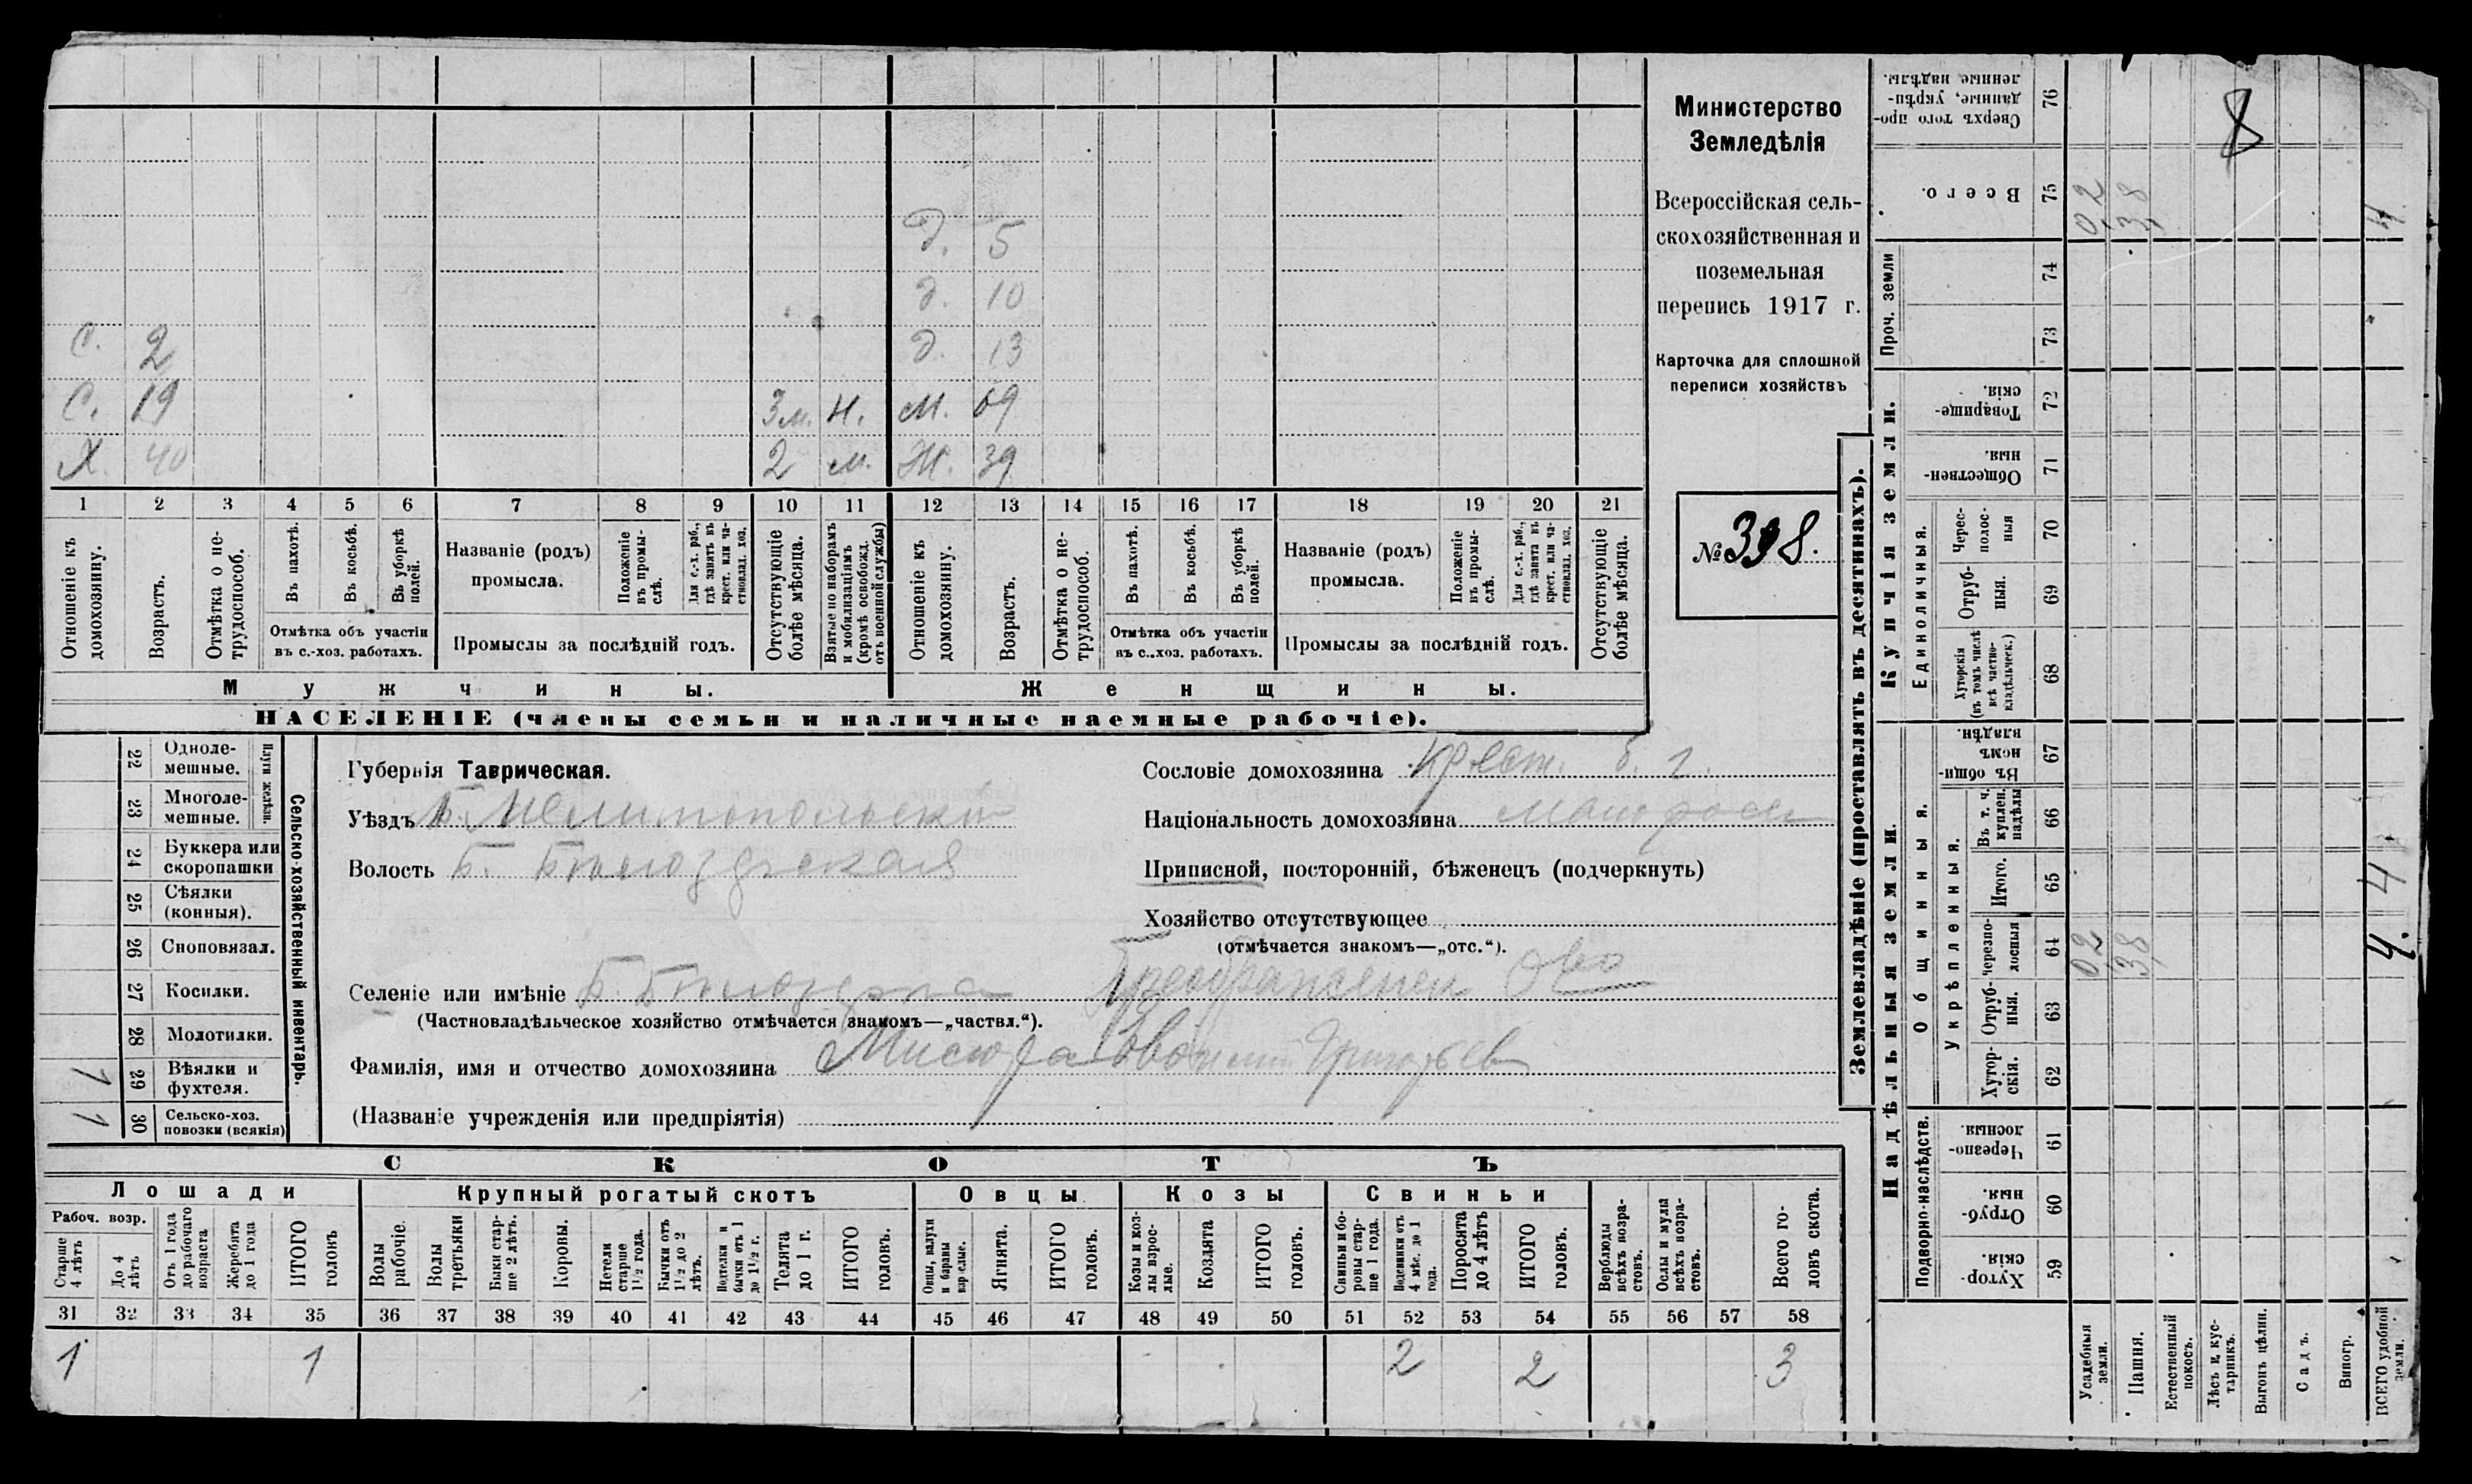 Министерство
Земледѣлія
Всероссійская сель-
скохозяйственная и
поземельная
перепись 1917 г.
Карточка для сплошной
переписи хозяйствъ
№ 398.
8
д. 5
д. 10
С. 2 д. 13
С. 19 3 м. Н. М. 69
Х 40 2 м. Ж. 39
1 2 3 4 5 6 7 8 9 10 11 12 13 14 15 16 17 18 19 20 21
Отношеніе къ домохозяину.
Возрастъ.
Отмѣтка о не-трудоспособ.
Въ пахотѣ.
Въ косьбѣ.
Въ уборкѣ полей.
Отмѣтка объ участіи
въ с.-хоз. работахъ.
Названіе (родъ)
промысла.
Положеніе въ промы-слѣ.
Для с.-х. раб., гдѣ занятъ въ крест. или ча-стновлад. хоз.
Промыслы за послѣдній годъ.
Отсутствующіе болѣе мѣсяца.
Взятые по наборамъ и мобилизаціямъ (кромѣ освобожд. отъ военной службы)
Отношеніе къ домохозяину.
Возрастъ.
Отмѣтка о не-трудоспособ.
Въ пахотѣ.
Въ косьбѣ.
Въ уборкѣ полей.
Отмѣтка объ участіи
въ с.-хоз. работахъ.
Названіе (родъ)
промысла.
Положеніе въ промы-слѣ.
Для с.-х. раб., гдѣ занятъ въ крест. или ча-стновлад. хоз.
Промыслы за послѣдній годъ.
Отсутствующіе болѣе мѣсяца.
Мужчины. Женщины.
НАСЕЛЕНІЕ (члены семьи и наличные наемные рабочіе).
22 Одноле-мешные.
23 Многоле-мешные.
Плуги желѣзн.
24 Буккера или скоропашки
25 Сѣялки (конныя).
26 Сноповязал.
27 Косилки.
28 Молотилки.
1 29 Вѣялки и фухтеля.
1 30 Сельско-хоз. повозки (всякія)
Сельско-хозяйственный инвентарь.
Губернія Таврическая.
Уѣздъ Мелитопольскій
Волость Б. Бѣлозерская
Селеніе или имѣніе Б. Бѣлозерка Преображенск О-во
(Частновладѣльческое хозяйство отмѣчается знакомъ—„частвл.“).
Фамилія, имя и отчество домохозяина Мисюра Григорьев
(Названіе учрежденія или предпріятія)
Сословіе домохозяина Крест.
Національность домохозяина малоросс
Приписной, посторонній, бѣженецъ (подчеркнуть)
Хозяйство отсутствующее
(отмѣчается знакомъ—„отс.“).
СКОТЪ
Лошади Крупный рогатый скотъ Овцы Козы Свиньи
Рабоч. возр.
Старше 4 лѣтъ
До 4 лѣтъ
Отъ 1 года до рабочаго возраста
Жеребята до 1 года
ИТОГО головъ
Волы рабочіе
Волы третьяки
Быки стар-ше 2 лѣтъ.
Коровы.
Нетели старше 1½ года.
Бычки отъ 1½ до 2 лѣтъ.
Подтелки и бычки отъ 1 до 1½ г.
Телята до 1 г.
ИТОГО головъ.
Овцы, валухи и бараны взрослые.
Ягнята.
ИТОГО головъ.
Козы и коз-лы взрос-лые.
Козлята
ИТОГО головъ.
Свиньи и бо-ровы стар-ше 1 года.
Подсвинки отъ 4 мѣс. до 1 года.
Поросята до 4 лѣтъ
ИТОГО головъ.
Верблюды всѣхъ возра-стовъ.
Ослы и мулы всѣхъ возра-стовъ.
Всего го-ловъ скота.
31 32 33 34 35 36 37 38 39 40 41 42 43 44 45 46 47 48 49 50 51 52 53 54 55 56 57 58
1 1 2 2 3
Землевладѣніе (проставлять въ десятинахъ).
Купчія земли.
Надѣльныя земли.
Сверхъ того про-данные, укрѣп-ленные надѣлы. 76
Всего. 75 02 38 4
Проч. земли 74
73
Товарище-скія. 72
Обществен-ныя. 71
Единоличныя.
Черес-полос-ныя 70
Отруб-ныя. 69
Хуторскія (въ томъ числѣ всѣ частно-владѣльческ.) 68
Общинныя.
Въ общи-номъ владѣн. 67
Укрѣпленныя.
Въ т. ч. куплен. надѣлы 66
Итого. 65 4
Черезпо-лосныя 64 02 38 4.
Отруб-ныя. 63
Хутор-скія. 62
Подворно-наслѣдств.
Черезпо-лосныя. 61
Отруб-ныя. 60
Хутор-скія. 59
Усадебныя земли.
Пашня.
Естественный покосъ.
Лѣсъ и кус-тарникъ.
Выгонъ цѣлин.
Садъ.
Виногр.
ВСЕГО удобной земли.